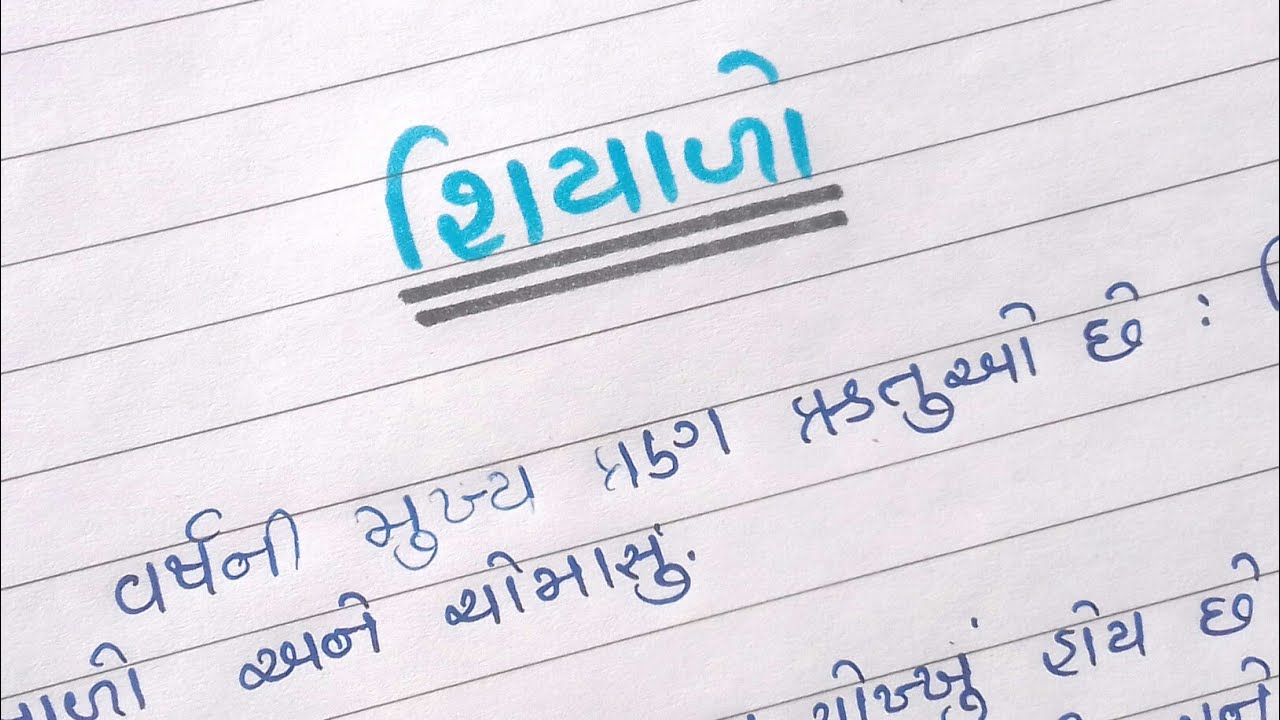 શિયાળો
વર્ષની મુખ્ય ત્રણ ઋતુઓ છે :
અને ચોમાસું.
ચોખ્ખું હોય છે